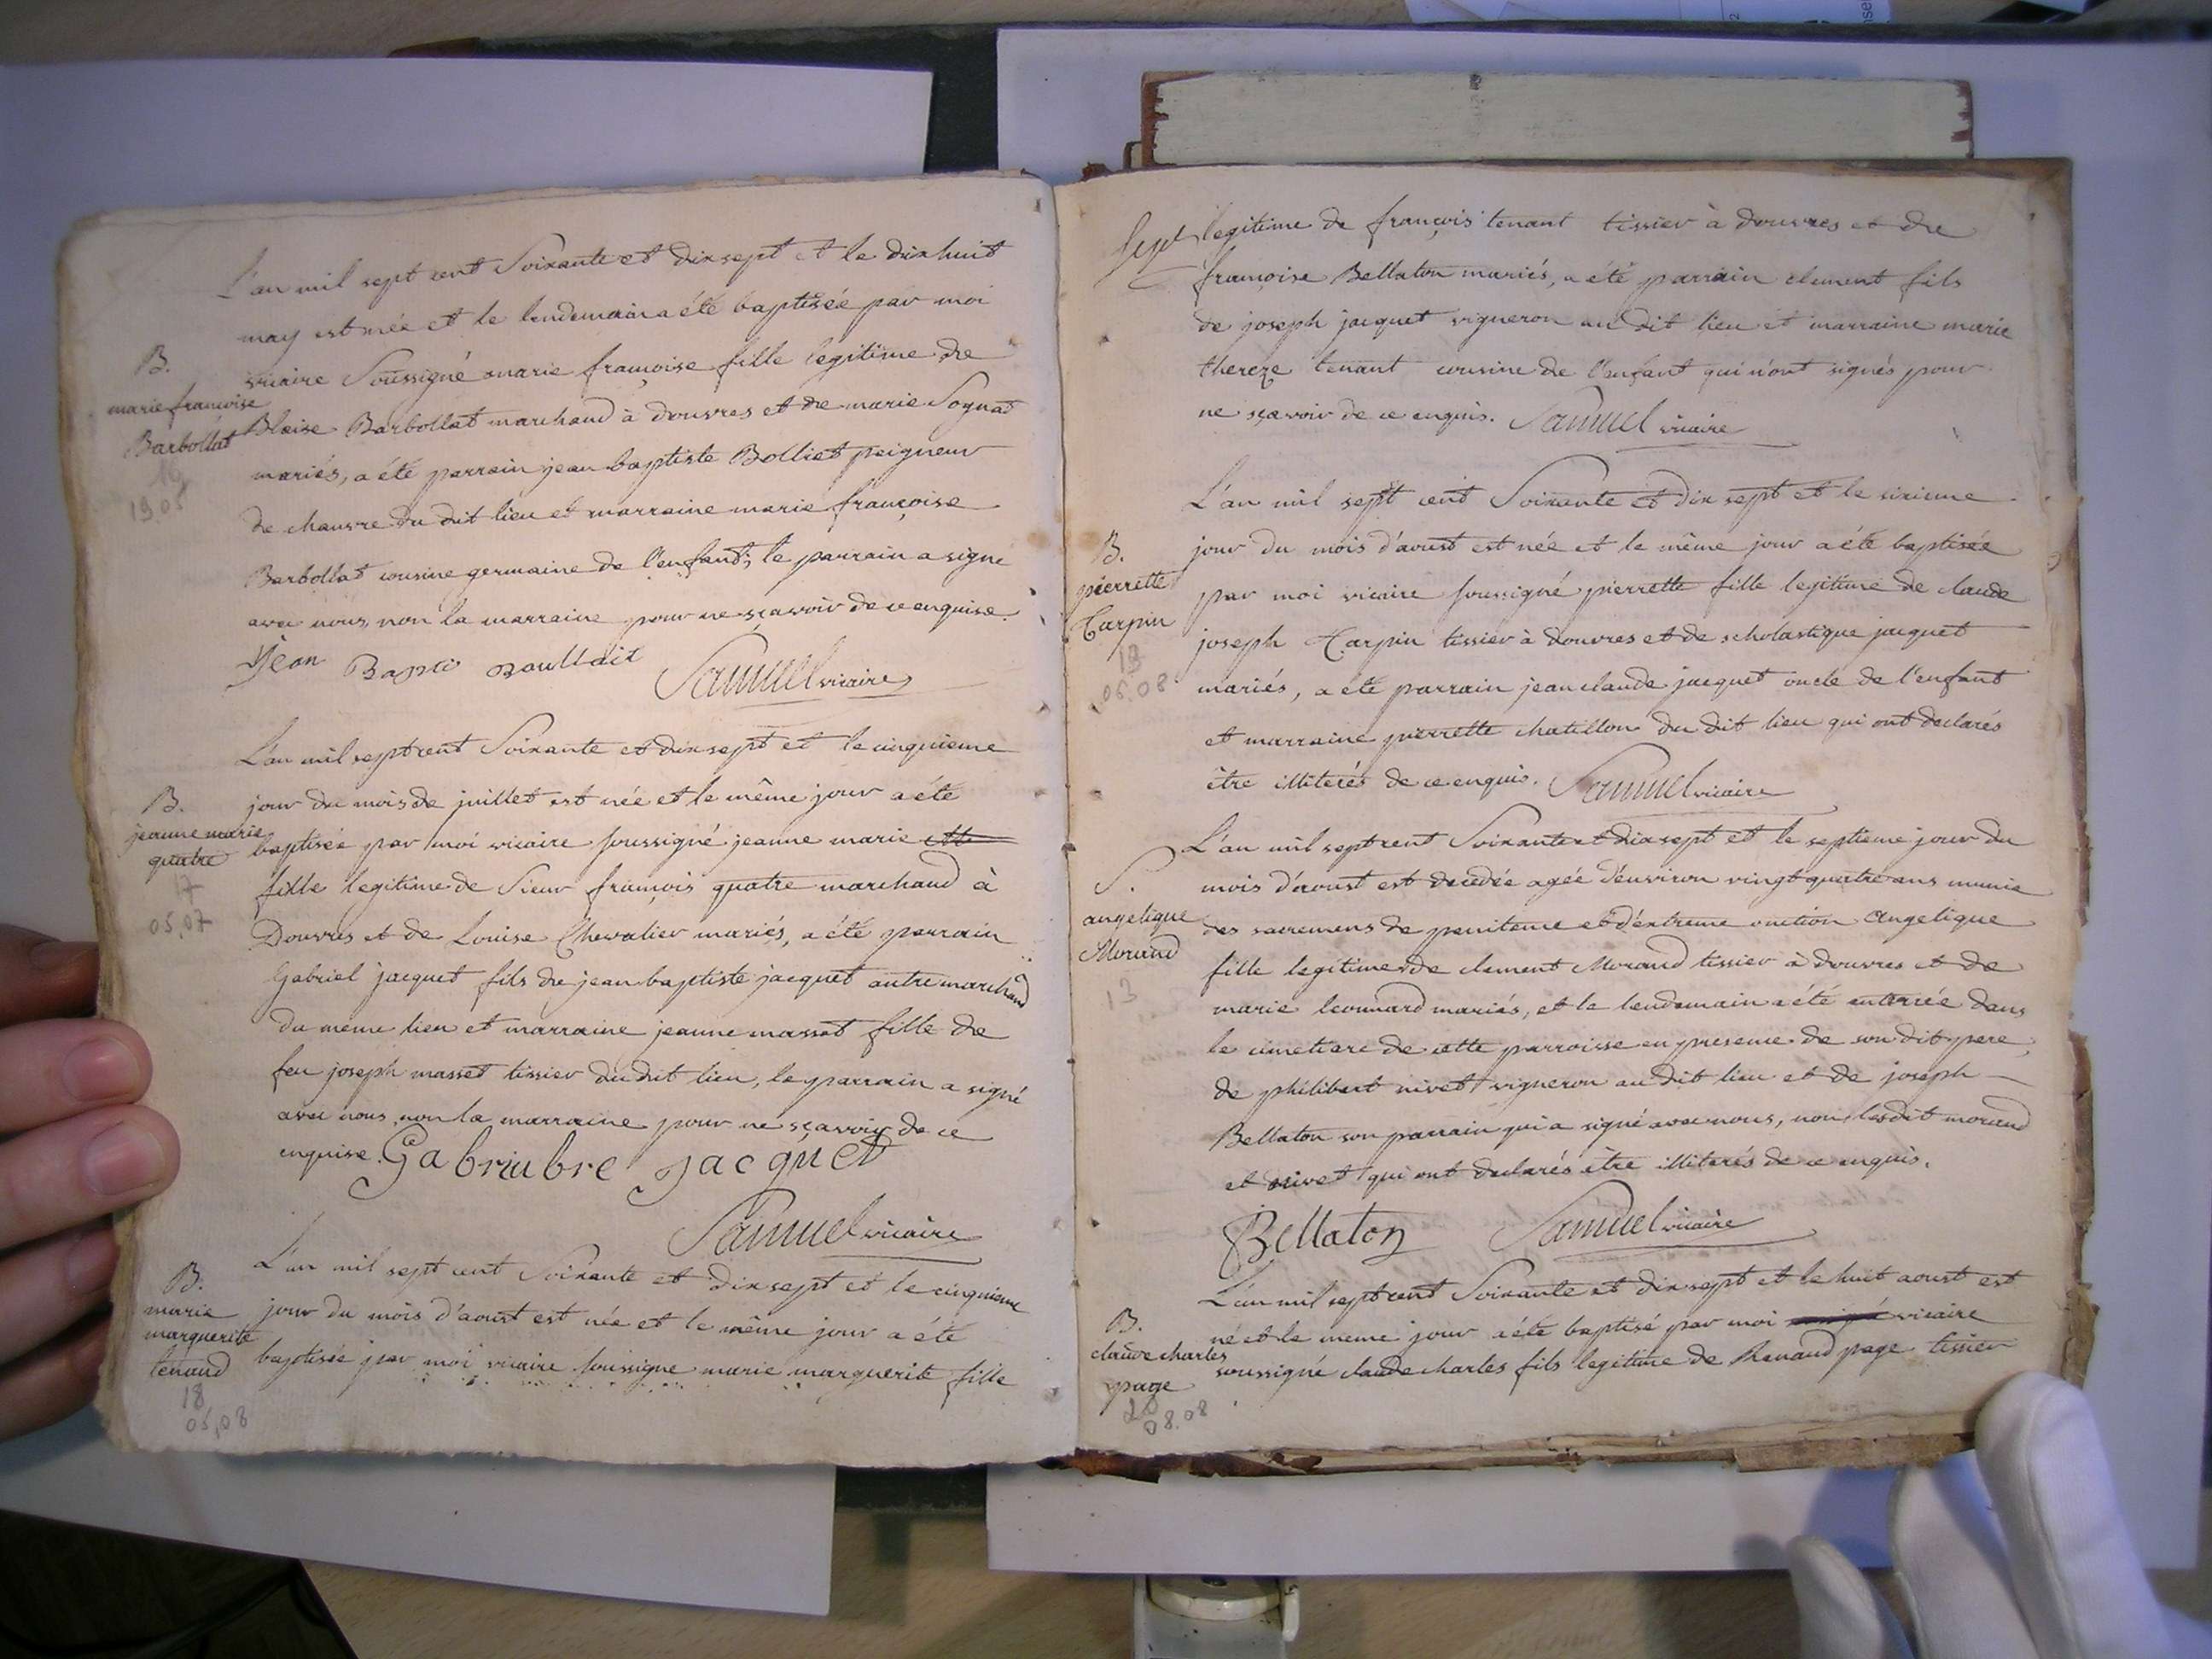 L'an mil sept cent Soixante et dix sept et le dix huit
may est née et le lendemain a été baptisée par moi
B.
vicaire Soussigné marie françoise fille legitime de
marie francoise
Barbollat
19.05
Blaise Barbollat marchand à douvres et de marie Sognat
mariés, a été parrain jean baptiste Bolliet peigneur
de chanvre du dit lieu et marraine marie françoise
Barbollat cousine germaine de l'enfant; le parrain a signé
avec nous, non la marraine pour ne sçavoir de ce enquise.
Jean Bapti Boulliait Samuel vicaire
L'an mil sept cent Soixante et dix sept et le cinquieme
B.
jeanne marie
quatre
17
05.07
jour du mois de juillet est née et le même jour a été
baptisée par moi vicaire soussigné jeanne marie
fille legitime de Sieur françois quatre marchand à
Douvres et de Louise Chevalier mariés, a été parrain
Gabriel jacquet fils de jean baptiste jacquet autre marchand
du meme lieu et marraine jeanne masset fille de
feu joseph masset tissier du dit lieu, le parrain a signé
avec nous, non la marraine pour ne sçavoir de ce
enquise. Gabriubre jacquet
Samuel vicaire
L'an mil sept cent Soixante et dix sept et le cinquieme
B.
marie
marguerite
tenand
18
05.08
jour du mois d'aoust est née et le même jour a été
baptisée par moi vicaire soussigné marie marguerite fille
Sept
legitime de françois tenant tissier à douvres et de
françoise Bellaton mariés, a été parrain clement fils
de joseph jacquet vigneron au dit lieu et marraine marie
thereze tenant cousine de l'enfant qui n'ont signés pour
ne sçavoir de ce enquis. Samuel vicaire
L'an mil sept cent Soixante et dix sept et le sixieme
B.
pierrette
Carpin
06.08
jour du mois d'aoust est née et le même jour a été baptisée
par moi vicaire soussigné pierrette fille legitime de claude
joseph Carpin tissier à douvres et de scholastique jacquet
mariés, a été parrain jean claude jacquet oncle de l'enfant
et marraine pierrette chatillon du dit lieu qui ont declarés
être illiterés de ce enquis. Samuel vicaire
L'an mil sept cent Soixante et dix sept et le septieme jour du
S.
angelique
Morand
13
mois d'aoust est decedée agée d'environ vingt quatre ans munie
des sacremens de penitence et d'extreme onction Angelique
fille legitime de clement Morand tissier à douvres et de
marie leonnard mariés, et le lendemain a été enterrée dans
le cimetiere de cette parroisse en presence de son dit pere,
de philibert nivet vigneron au dit lieu et de joseph
Bellaton son parrain qui a signé avec nous, non lesdit morand
et nivet qui ont declarés être illiterés de ce enquis.
Bellaton Samuel vicaire
L'an mil sept cent Soixante et dix sept et le huit aoust est
B.
claude charles
page
08.08
né et le meme jour a été baptisé par moi vicaire
soussigné claude charles fils legitime de Renaud page tissier